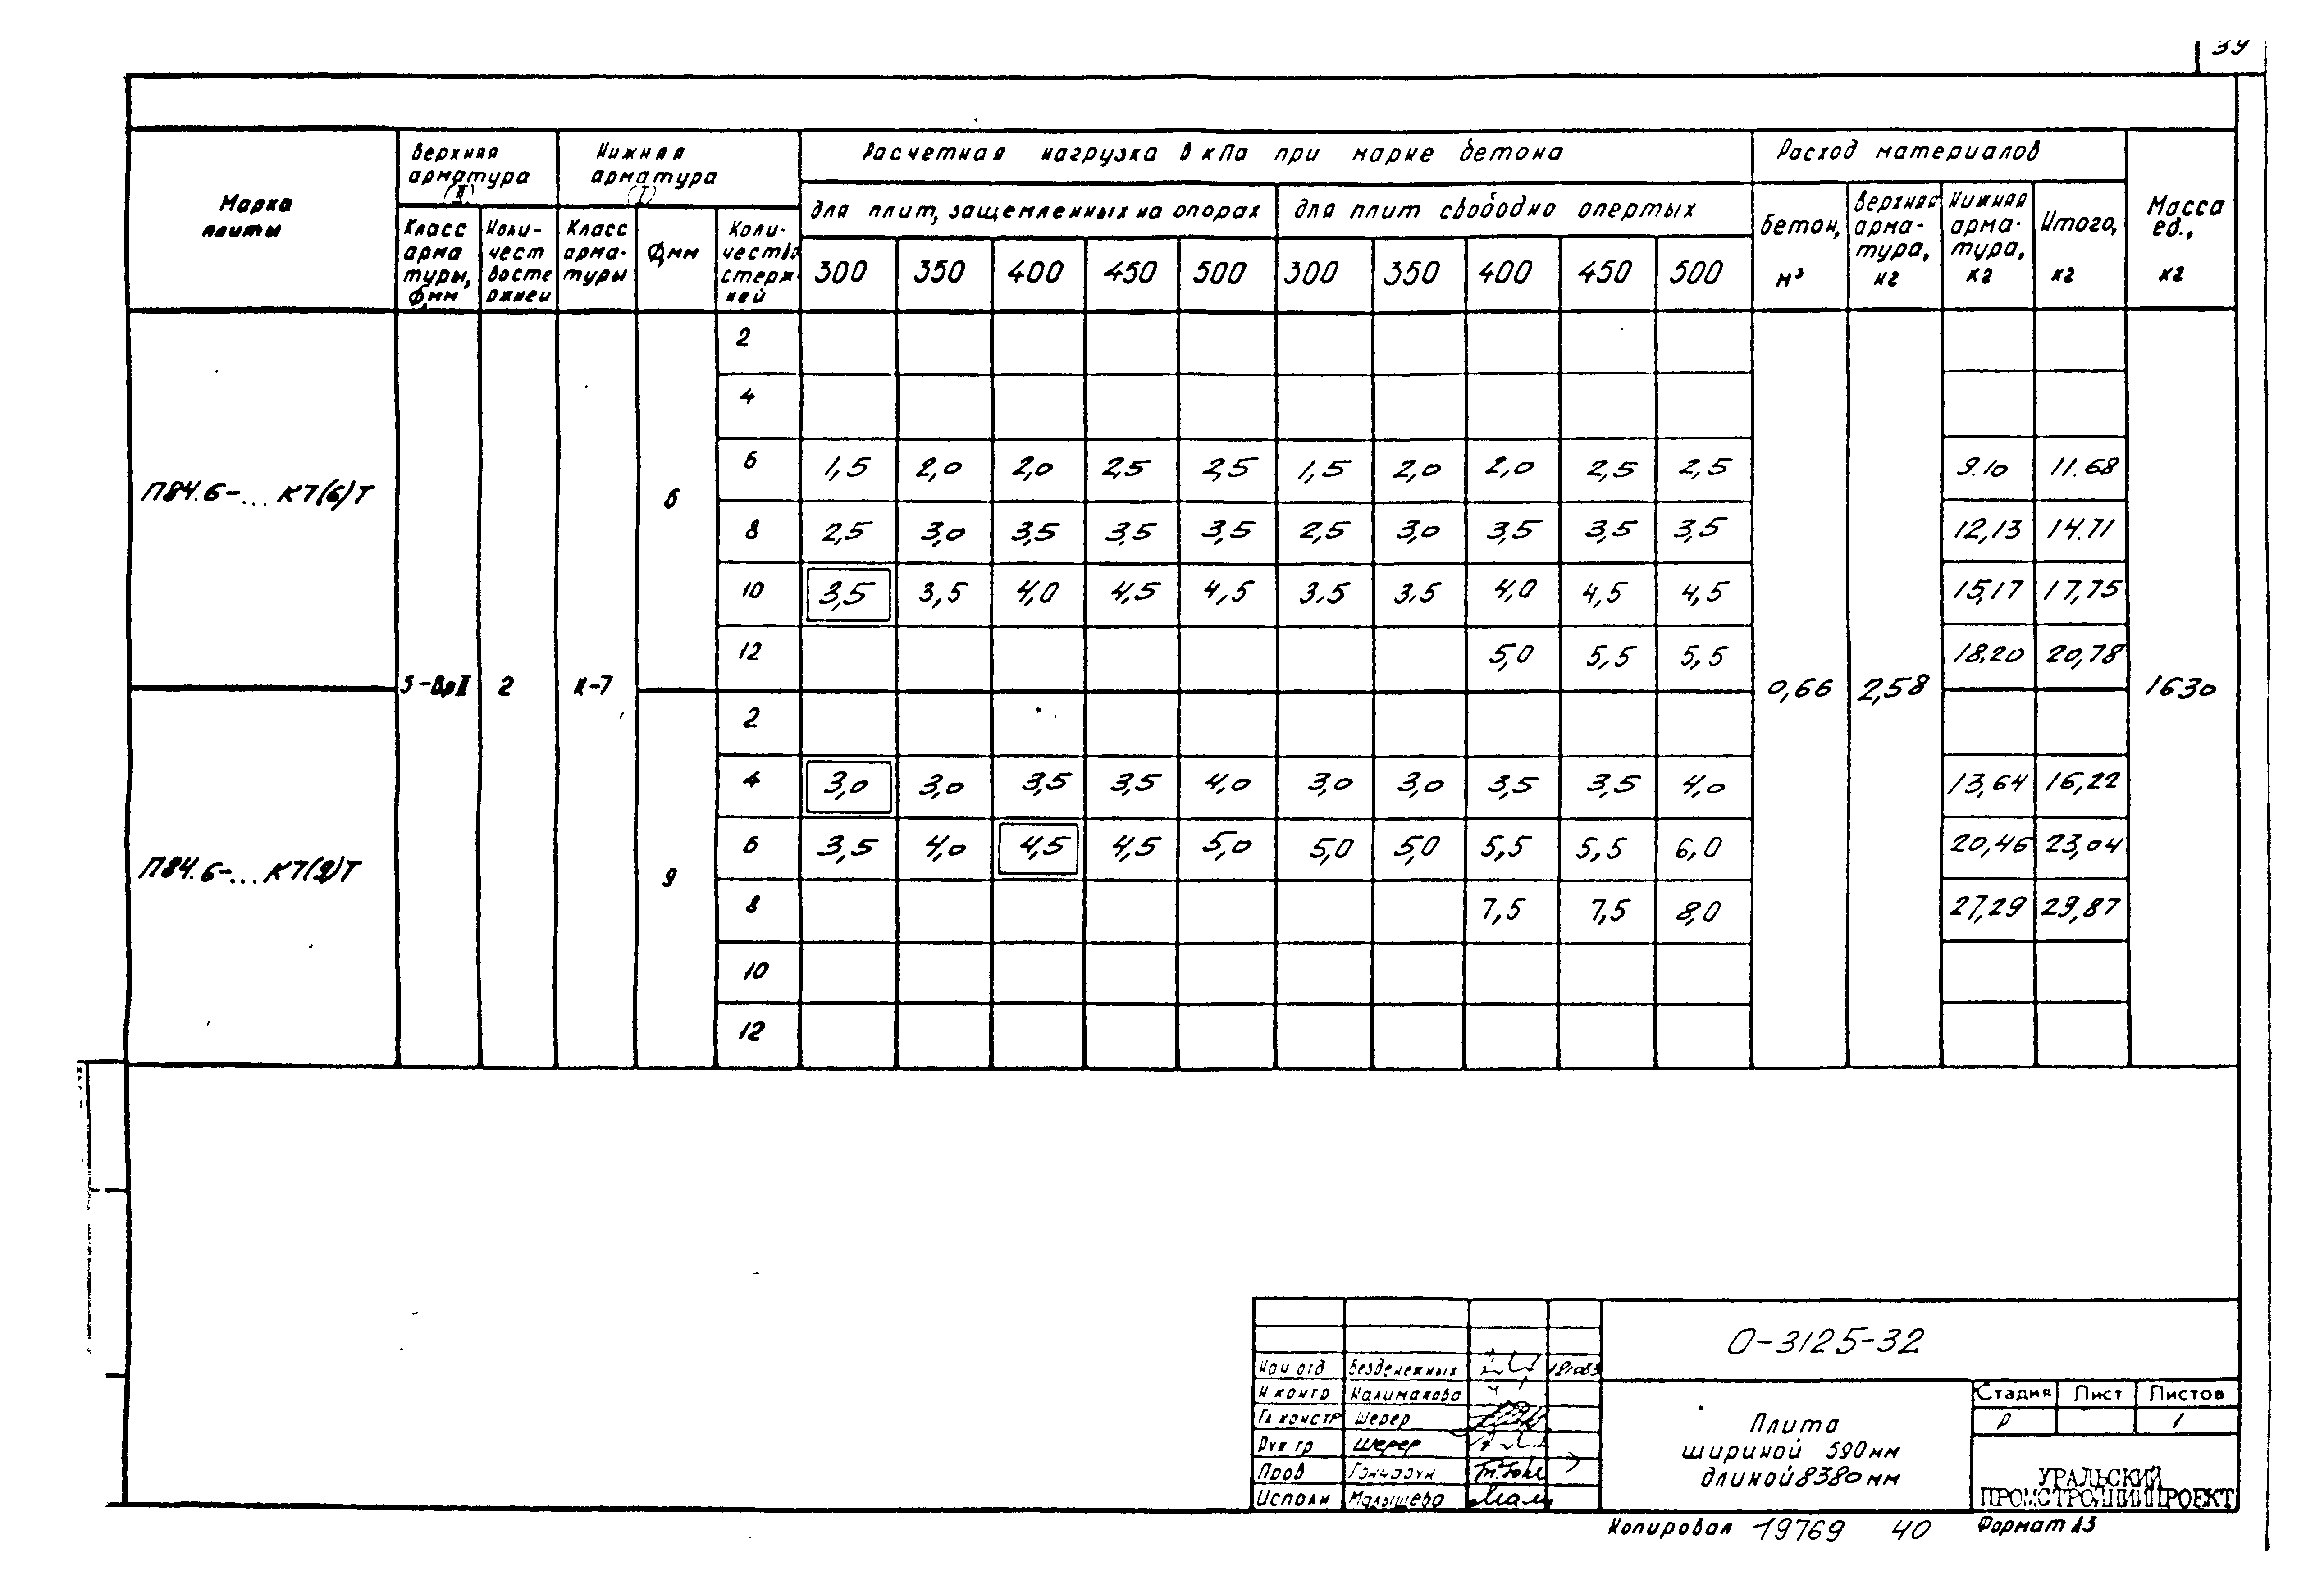 39
Марка плиты
Верхняя арматура (II)
Нижняя арматура (I)
Расчетная нагрузка в кПа при марке бетона
Расход материалов
Масса ед., кг
для плит, защемленных на опорах
для плит свободно опертых
Класс арма туры, Ф,мм
Коли- чест восте ржней
Класс арма- туры
Ф,мм
Коли- чество стерж ней
300 350 400 450 500 300 350 400 450 500
Бетон, м³
Верхняя арма- тура, кг
Нижняя арма- тура, кг
Итого, кг
П84.6-...К7(6)Т
5-ВрII 2 К-7 6
0,66 2,58 1630
2
4
6 1,5 2,0 2,0 2,5 2,5 1,5 2,0 2,0 2,5 2,5 9.10 11.68
8 2,5 3,0 3,5 3,5 3,5 2,5 3,0 3,5 3,5 3,5 12,13 14.71
10 3,5 3,5 4,0 4,5 4,5 3.5 3.5 4,0 4,5 4,5 15,17 17,75
12 5,0 5,5 5,5 18.20 20,78
П84.6-...К7(9)Т
9
2
4 3,0 3,0 3,5 3,5 4,0 3,0 3,0 3,5 3,5 4,0 13,64 16,22
6 3,5 4,0 4,5 4,5 5,0 5,0 5,0 5,5 5,5 6,0 20,46 23,04
8 7,5 7,5 8,0 27,29 29,87
10
12
О-3125-32
Нач отд Безденежных
Н контр Калимакова
Гл констр Шерер
Рук гр Шерер
Пров Гончарук
Исполн Малышева
Плита
шириной 590мм
длиной 8380мм
Стадия Лист Листов
Р 1
УРАЛЬСКИЙ
ПРОМСТРОЙНИИПРОЕКТ
Копировал 19769 40 Формат А3